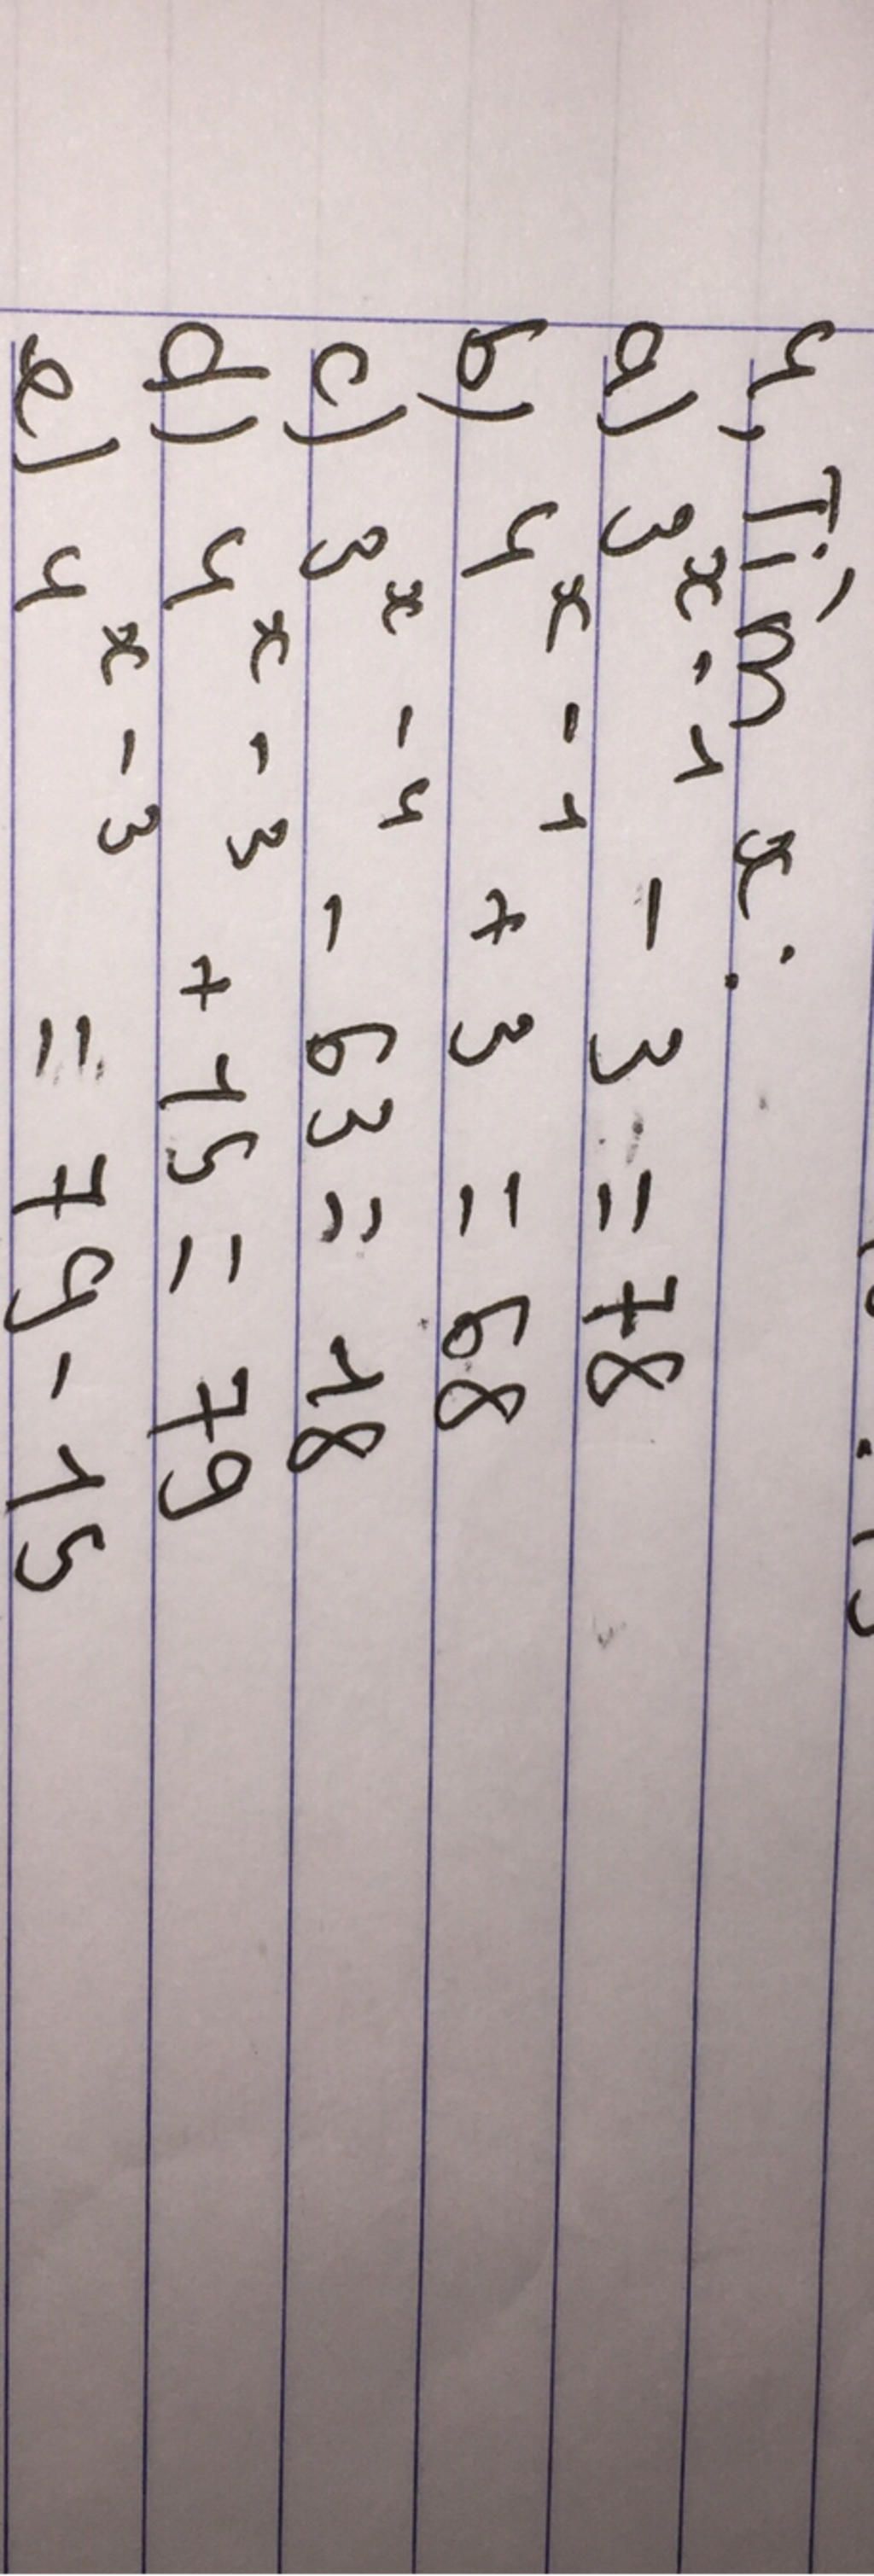 4, Tìm x:
a) 3ˣ⁻¹ - 3 = 78
b) 4ˣ⁻¹ + 3 = 68
c) 3ˣ⁻⁴ - 63 = 18
d) 4ˣ⁻³ + 15 = 79
e) 4ˣ⁻³ = 79 - 15